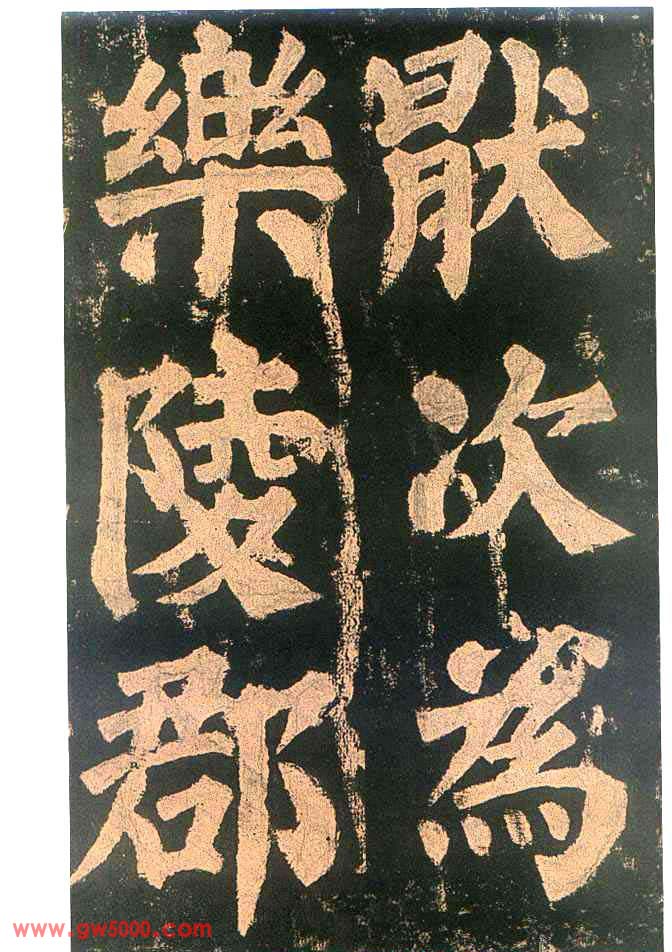 猒次為
樂陵郡
www.gw5000.com